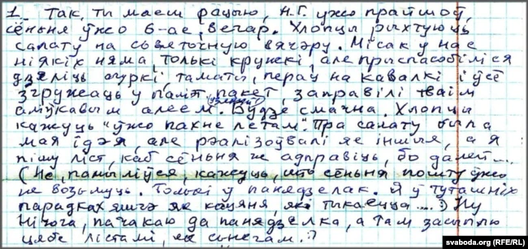 1. Так, ты маеш рацыю, Н.Г. ужо прайшоў,
сёньня ўжо 6-ае, вечар. Хлопцы рыхтуюць
салату на сьвяточную вячэру. Місак у нас
ніякіх няма, толькі кружкі, але прыспасобіліся
дзеліць гуркі таматы, перац на кавалкі і ўсё
згружаець у паліт. пакет, заправілі тваім
аліўкавым алеем. Будзе смачна. Хлопцы
кажуць "ужо пахне летам". Пра салату была
мая ідэя, але рэалізоўвалі яе іншыя, а я
пішу ліст, каб сёньня ж адправіць, бо далей...
(Не, памыліўся, кажуць, што сёньня пошту ўжо
не возьмуць. Толькі у панядзелак. Я у туташніх
парадках яшчэ як кацяня, які тыкаецца...) Ну
Нічога, пачакаю да панядзелка, а там засыплю
цябе лістамі, як сьнегам.
svaboda.org (RFE/RL)